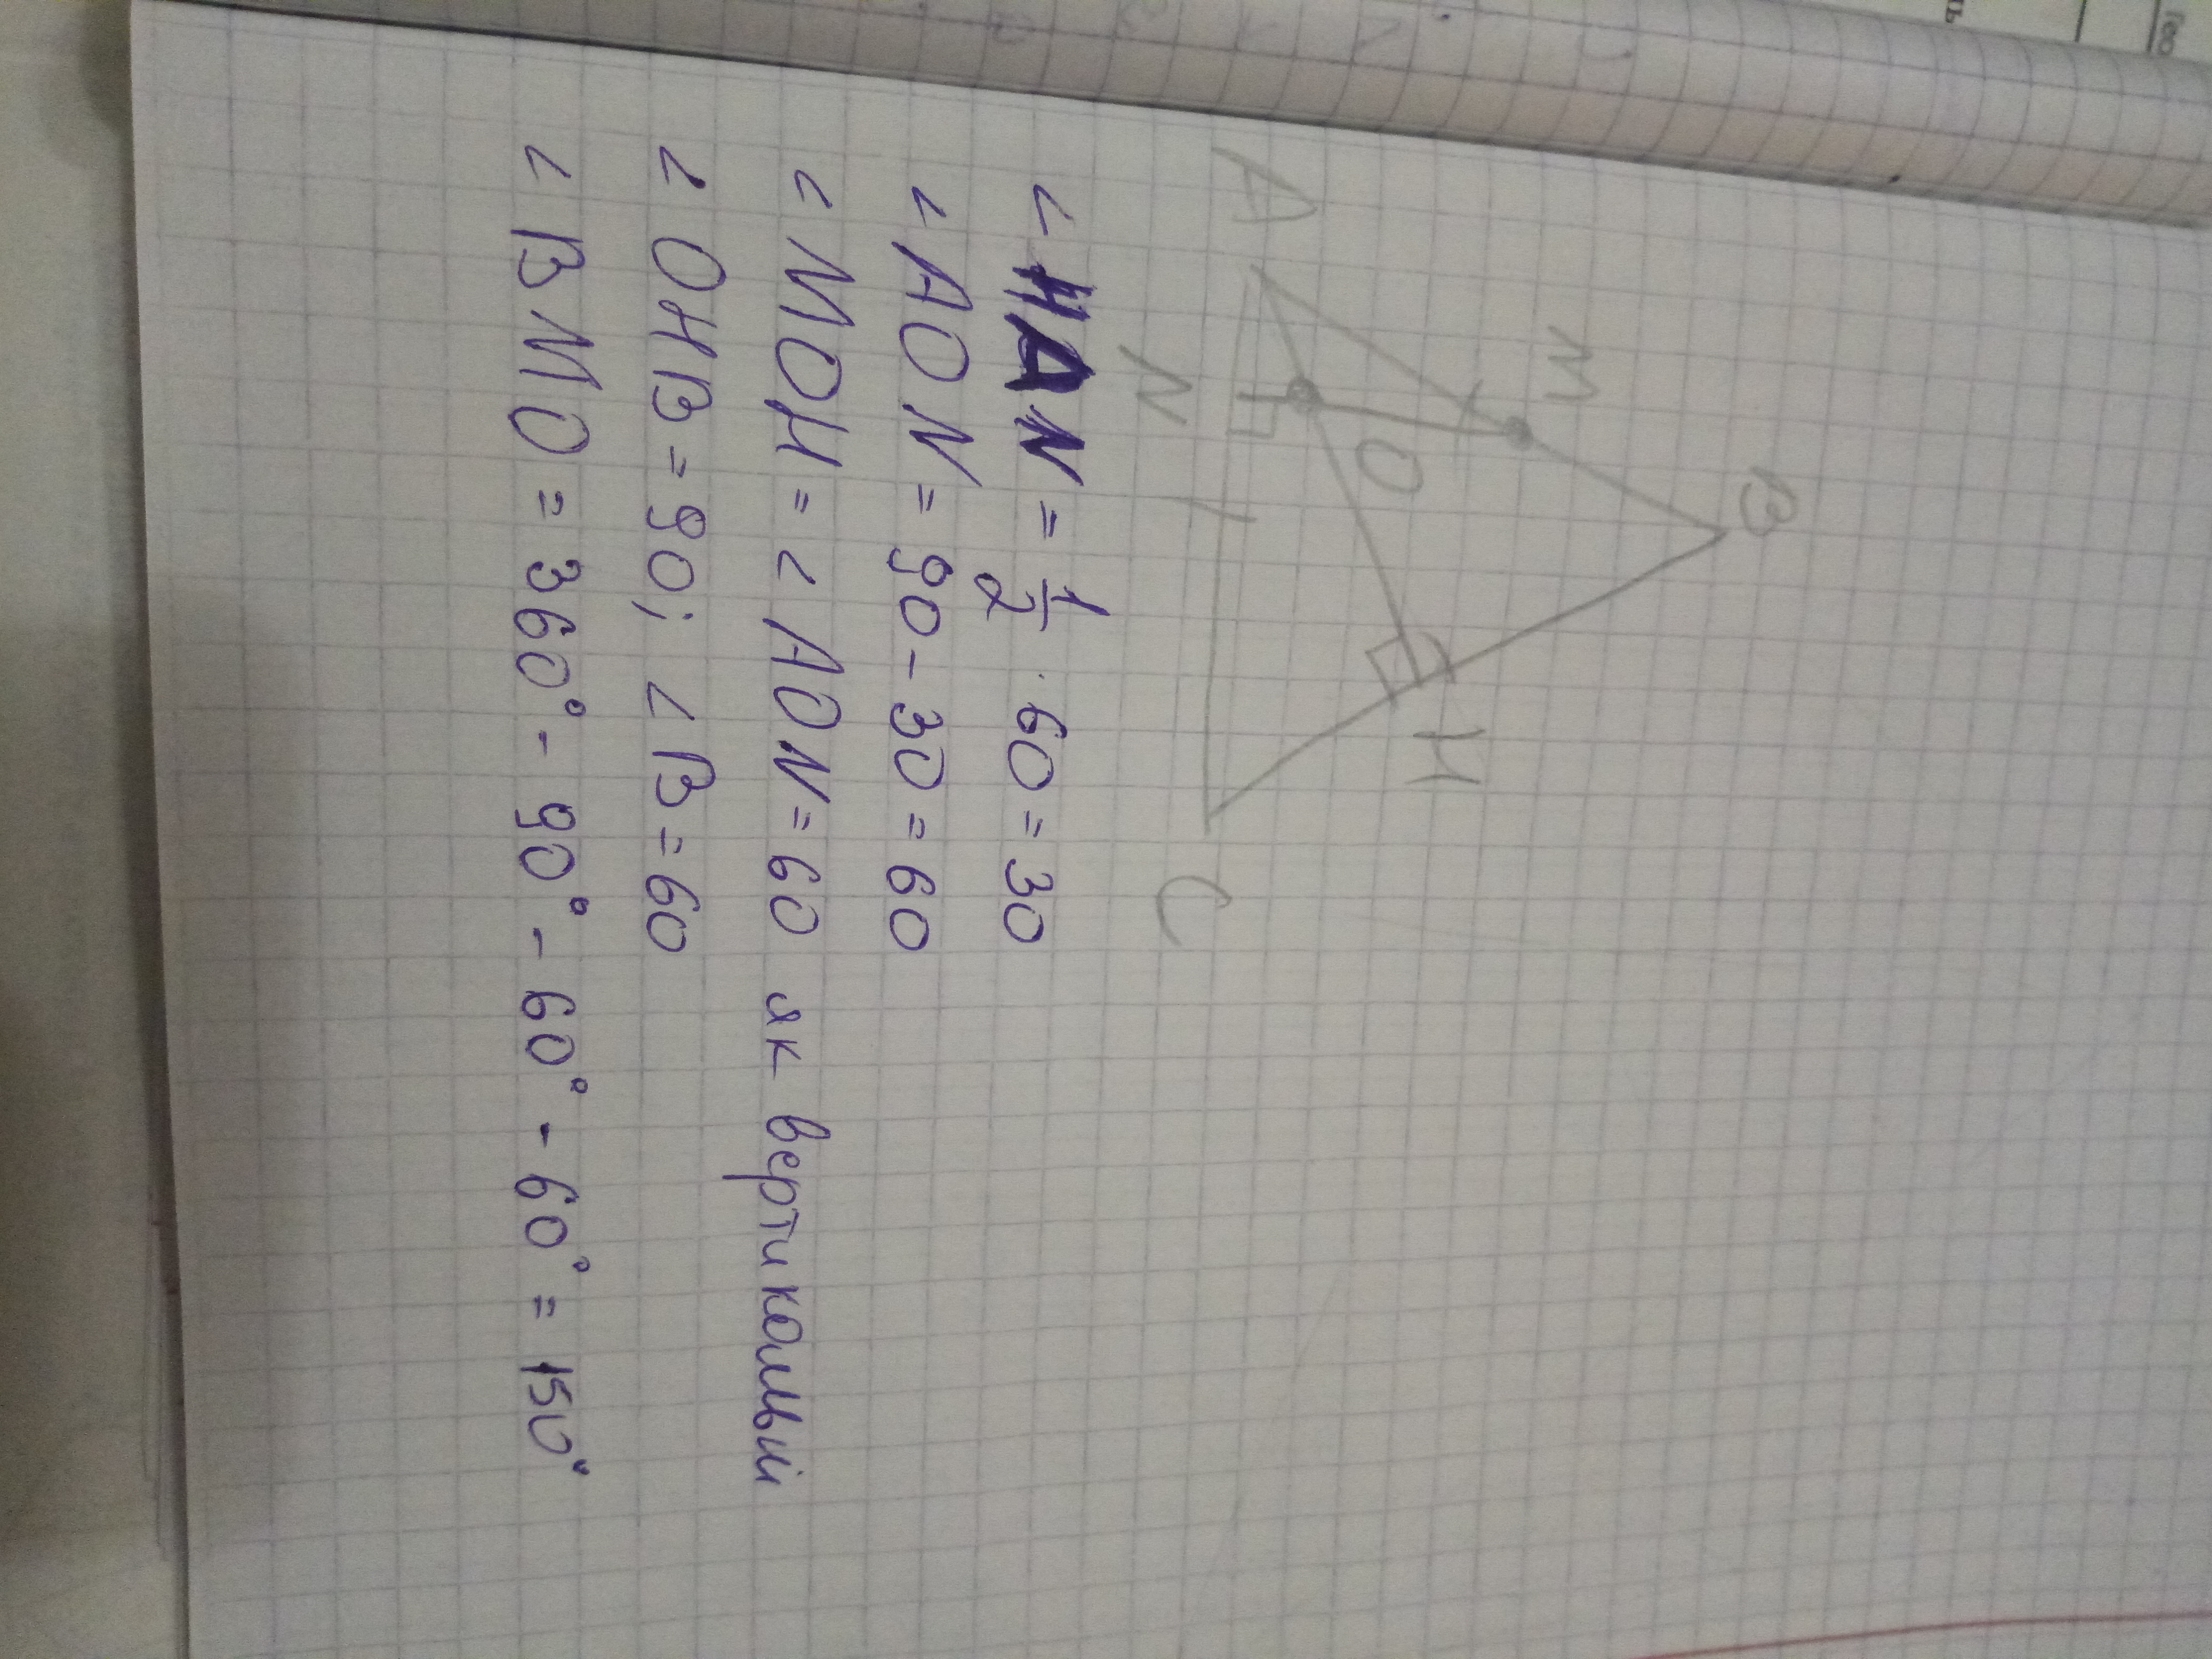 B
M
A
O
H
N
C
∠HAN = 1/2 · 60 = 30
∠AON = 90 - 30 = 60
∠MOH = ∠AON = 60 як вертикальні
∠OHB = 90; ∠B = 60
∠BMO = 360° - 90° - 60° - 60° = 150°